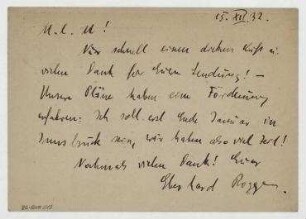 15. XII 32.
M. l. M!
Nur schnell einen dicken Kuß u.
vielen Dank für Eure Sendung! –
Unsere Pläne haben eine Förderung
erfahren: Ich soll erst Ende Januar in
Innsbruck sein, wir haben also viel Zeit!
Nochmals vielen Dank! Euer
Eberhard